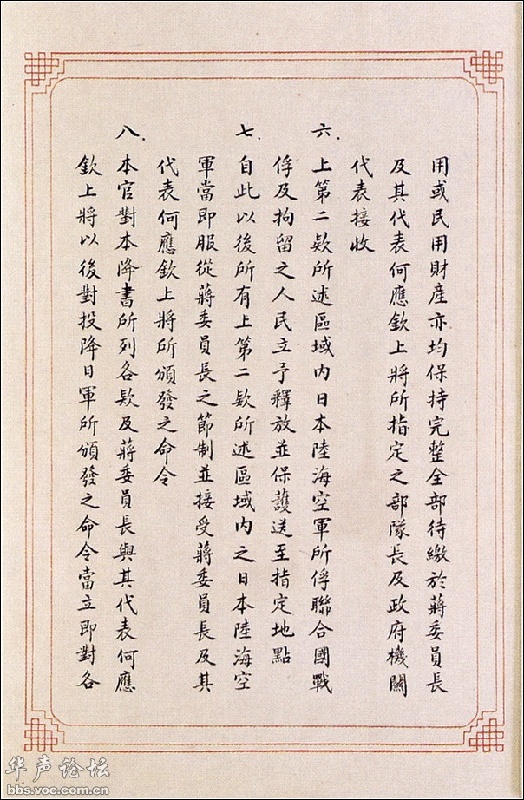 用或民用財產亦均保持完整全部待繳於蔣委員長
及其代表何應欽上將所指定之部隊長及政府機關
代表接收
六.上第二欵所述區域內日本陸海空軍所俘聯合國戰
俘及拘留之人民立予釋放並保護送至指定地點
七.自此以後所有上第二欵所述區域內之日本陸海空
軍當即服從蔣委員長之節制並接受蔣委員長及其
代表何應欽上將所頒發之命令
八.本官對本降書所列各欵及蔣委員長與其代表何應
欽上將以後對投降日軍所頒發之命令當立即對各
华声论坛
bbs.voc.com.cn